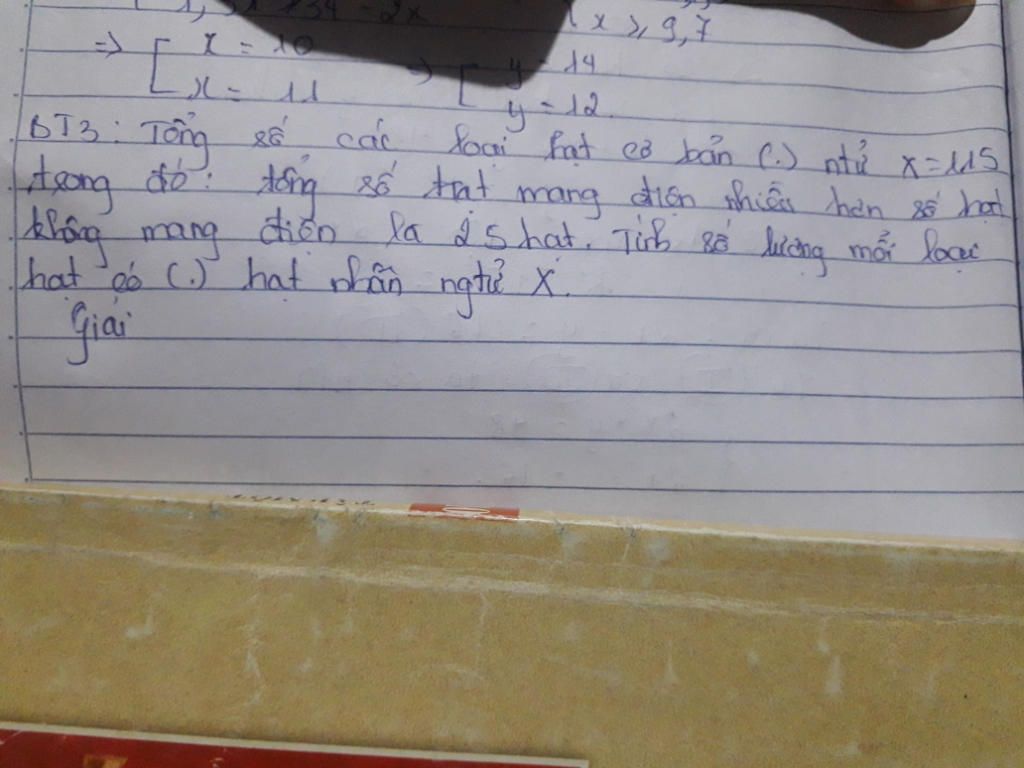 +34 - 2x
x ≥ 9,7
=> [ x = 10
x = 11
=> [ y = 14
y = 12
BT3: Tổng số các loại hạt cơ bản (.) ntử x = 115
trong đó: tổng số hạt mang điện nhiều hơn số hạt
không mang điện là 25 hạt. Tính số lượng mỗi loại
hạt có (.) hạt nhân ngtử X.
Giải